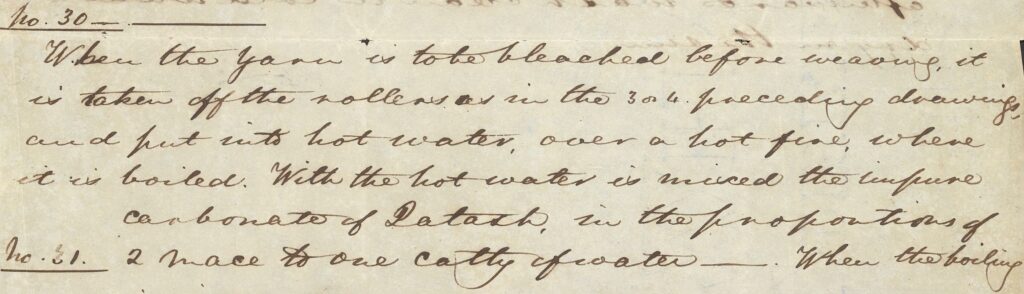 No. 30 —
When the Yarn is to be bleached before weaving, it
is taken off the rollers as in the 3 or 4. preceding drawings,
and put into hot water, over a hot fire, where
it is boiled. With the hot water is mixed the impure
carbonate of Potash, in the proportions of
No. 31. 2 mace to one catty of water — . When the boiling